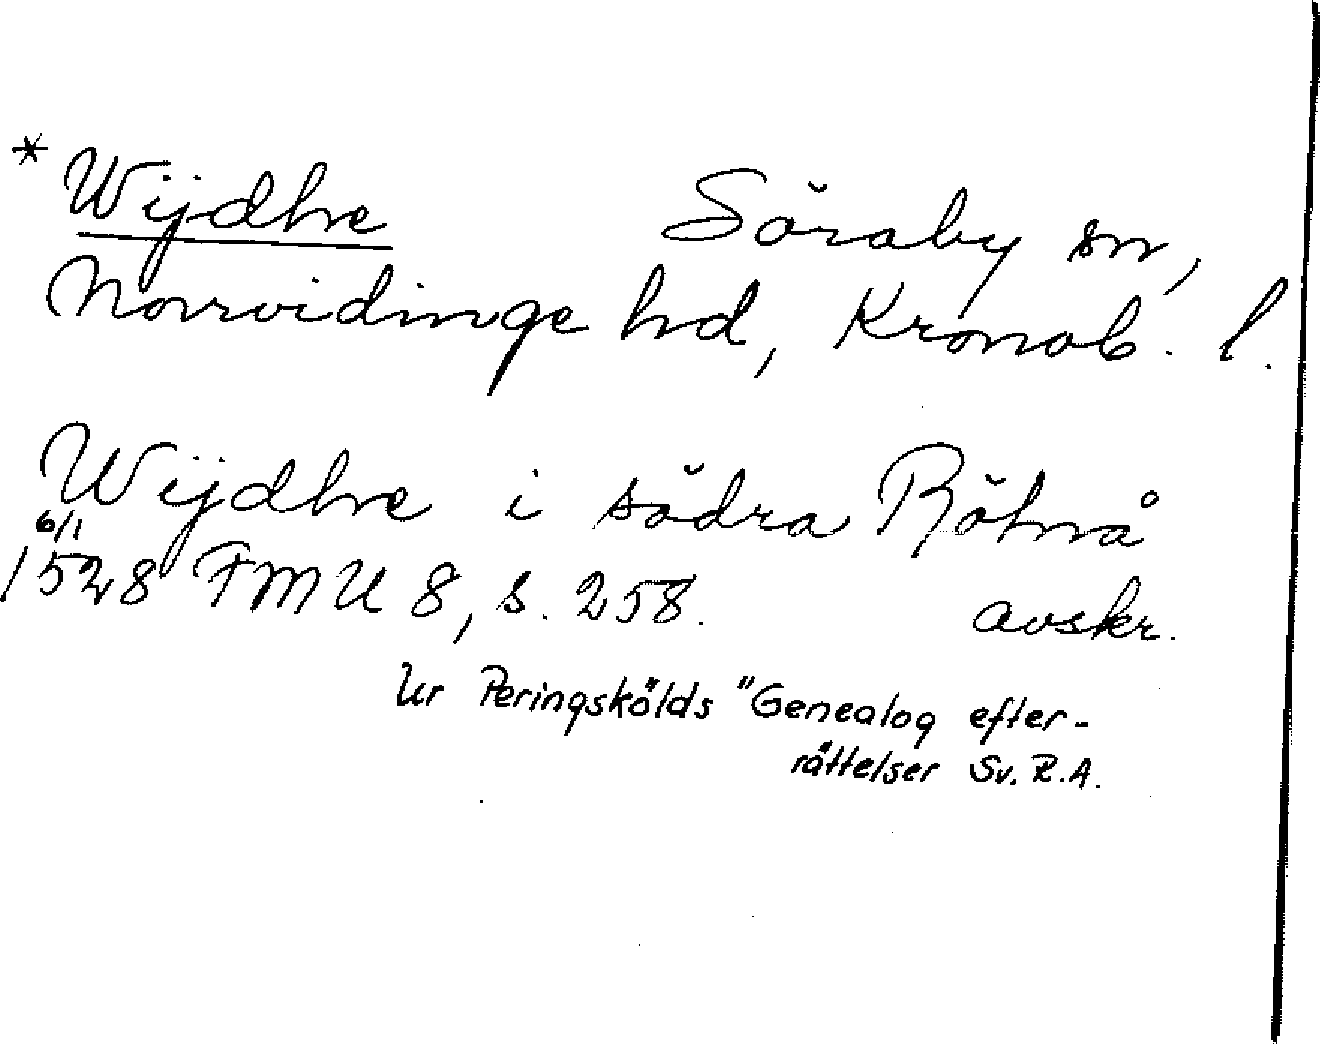 * Wijdhe Söraby sn,
Norrvidinge hd, Kronob. l.
Wijdhe i södra Röhnå
6/1
1528 FMU 8, s. 258. avskr.
Ur Peringskölds "Genealog efter-
rättelser Sv. R.A.